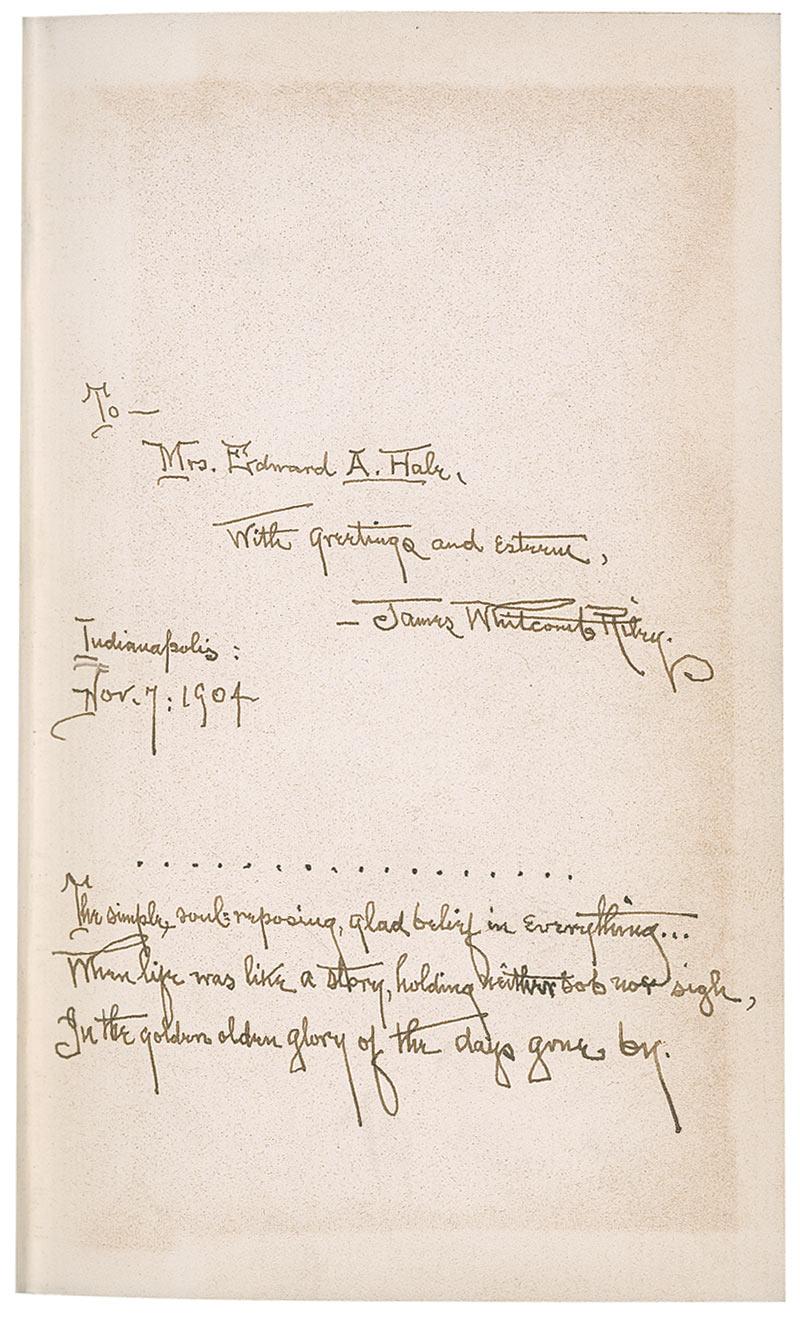 To—
Mrs. Edward A. Hale,
With greetings and esteem,
— James Whitcomb Riley.
Indianapolis:
Nov. 7: 1904
. . . . . . . . . . . . . . . . . . .
The simple, soul-reposing, glad belief in everything...
When life was like a story, holding neither sob nor sigh,
In the golden olden glory of the days gone by.